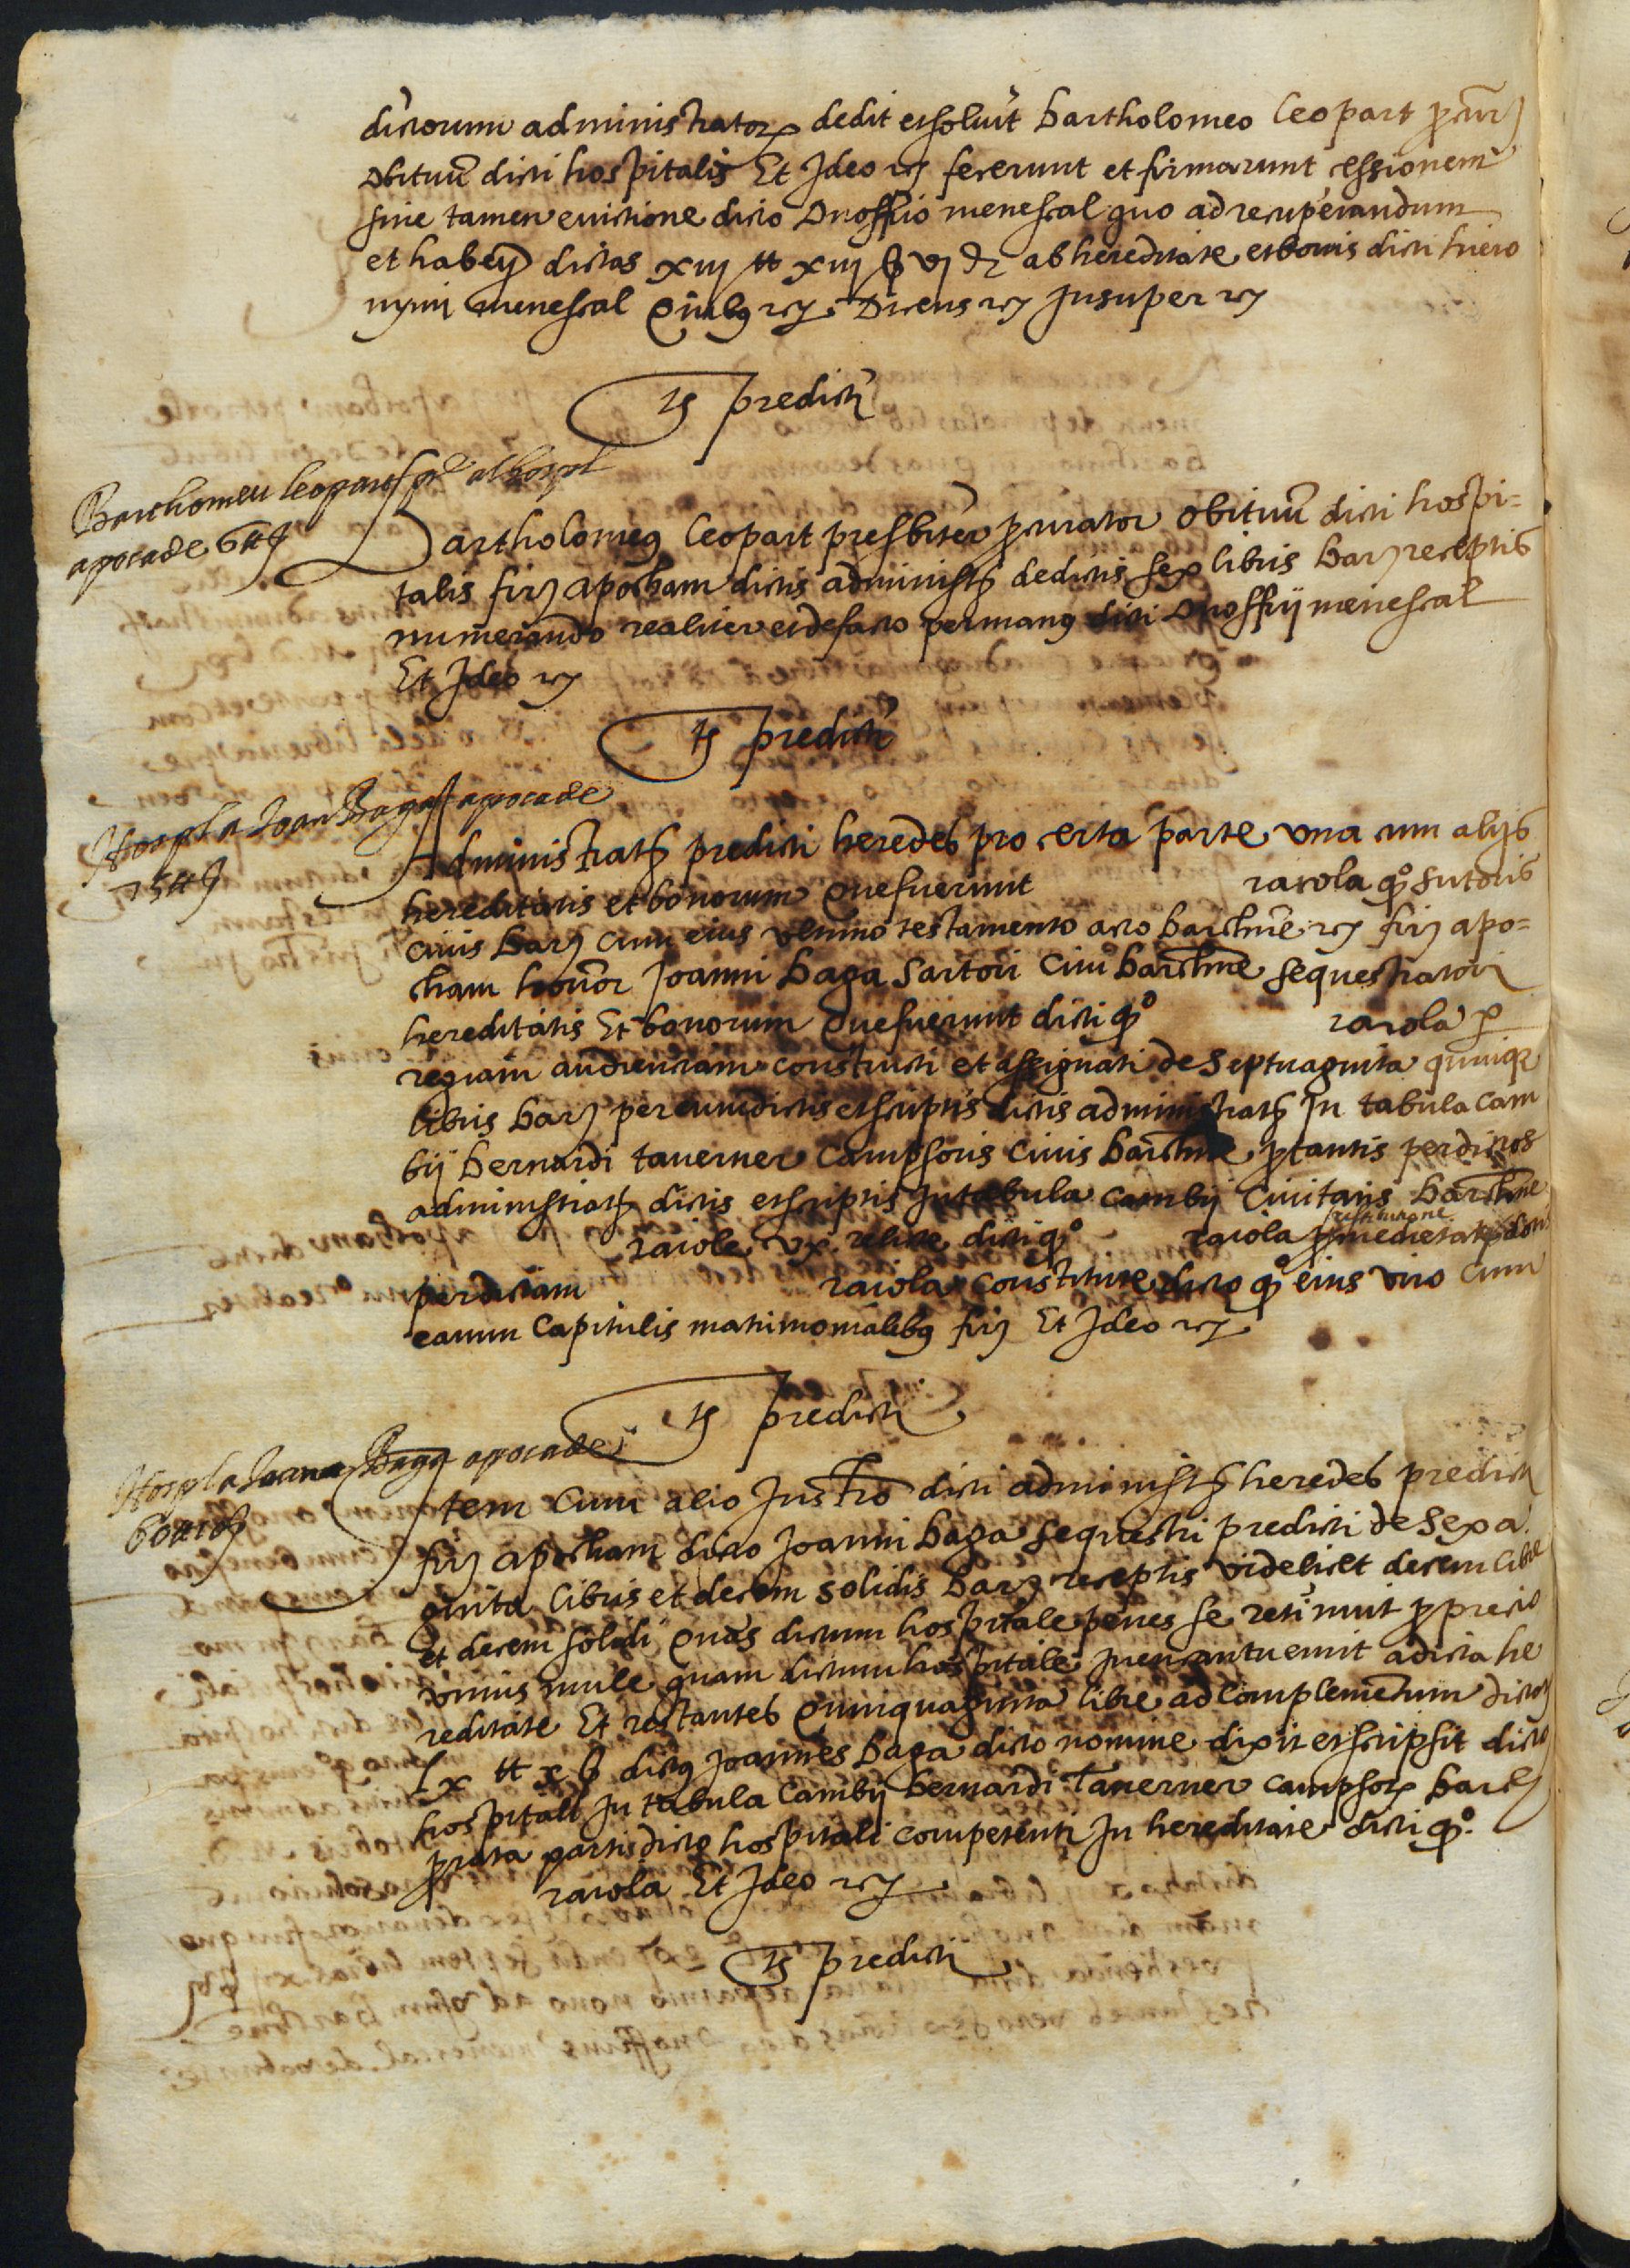 dictorum administrator dedit et soluit bartholomeo leopart procur
obituum dicti hospitalis Et Ideo etc fecerunt et firmarunt cessionem
sine tamen euictione dicto Onoffrio menescal quo ad recuperandum
et habend dictas xiij ll xiij ß vj d ab hereditate et bonis dicti hiero
nymi menescal Quibus etc. Dicens etc Insuper etc
ts predicti
Barthomeu leopart pre al hospl
apoca de 6 ll
Bartholomeus leopart presbiter procurator obituum dicti hospi=
talis firm apocham dictis administr de dictis sex libris barc receptis
numerando realiter et de facto per manus dicti Onoffrij menescal
Et Ideo etc
ts predicti
Hospl a Joan Baga apoca de
75 ll
Administrat predicti heredes pro certa parte vna cum alijs
hereditatis et bonorum que fuerunt raiola qo sutoris
ciuis barc cum eius vltimo testamento acto barchne etc firm apo=
cham honor Joanni baga sartori ciui barchne sequestratori
hereditatis Et bonorum que fuerunt dicti qo raiola per
regiam audienciam constructi et assignati de septuaginta quinque
libris barc per eum dictis et scriptis dictis administrat In tabula cam
bij bernardi tauerner campsoris ciuis barchne pro tantis per dictos
administrat dictis et scriptis In tabula cambij Ciuitatis barchne
raiole vx. relicte dicti qo raiola pro restitutione medietatis dotis
per dictam raiola constitute dicto qo eius viro cum
earum capitulis matrimonialibus firm Et Ideo etc
ts predicti
Hospl a Joan Baga apoca de
60 ll 10 ß
Item cum alio Instro dicti administr heredes predicti
firm apocham dicto Joanni baga sequestri predicti de sexa
ginta libris et decem solidis barc receptis videlicet decem libre
et decem solidi quas dictum hospitale penes se retinuit pro precio
vnius mule quam dictum hospitale In encantu emit a dicta he
reditate Et restantes quinquaginta libre ad complementum dictar
lx ll x ß dictus Joannes baga dicto nomine dixit et scripsit dicto
hospitali In tabula cambij bernardi Tauerner campsor barc
pro rata partis dicto hospitali competenti In hereditate dicti qo.
raiola Et Ideo etc
ts predicti